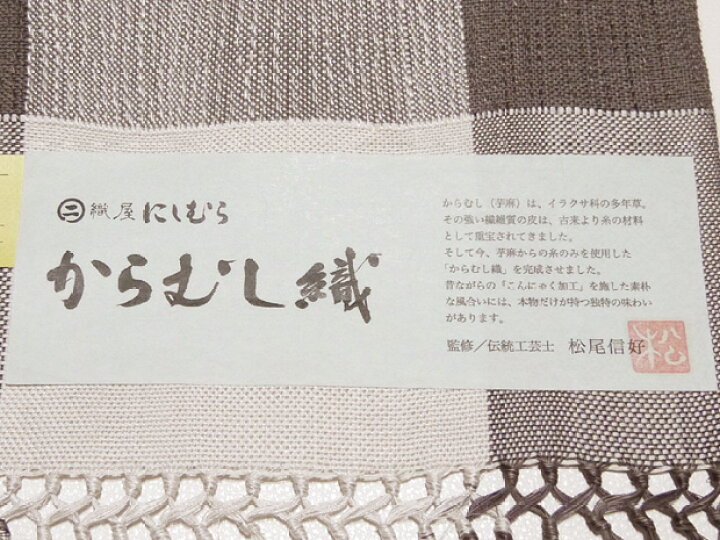 ㊁織屋にしむら
からむし織
からむし（苧麻）は、イラクサ科の多年草。
その強い繊維質の皮は、古来より糸の材料
として重宝されてきました。
そして今、苧麻からの糸のみを使用した
「からむし織」を完成させました。
昔ながらの「こんにゃく加工」を施した素朴
な風合いには、本物だけが持つ独特の味わい
があります。
監修／伝統工芸士 松尾信好
松